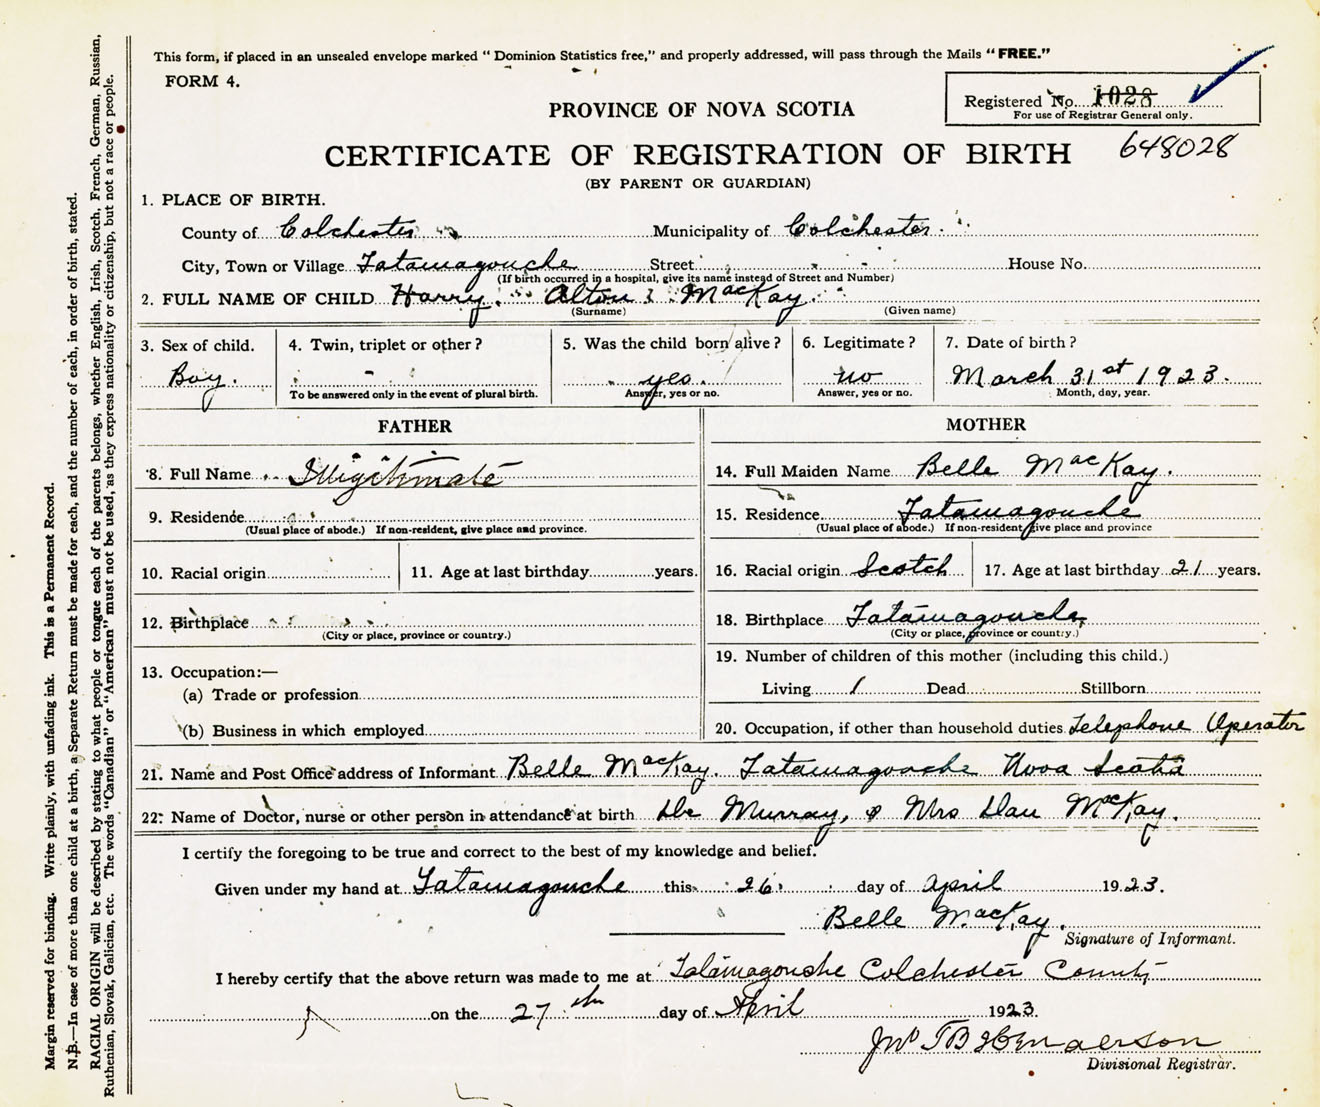 This form, if placed in an unsealed envelope marked "Dominion Statistics free," and properly addressed, will pass through the Mails "FREE."
FORM 4.
Registered No. 1028
For use of Registrar General only.
PROVINCE OF NOVA SCOTIA
CERTIFICATE OF REGISTRATION OF BIRTH 648028
(BY PARENT OR GUARDIAN)
1. PLACE OF BIRTH.
County of Colchester Municipality of Colchester
City, Town or Village Tatamagouche Street House No.
(If birth occurred in a hospital, give its name instead of Street and Number)
2. FULL NAME OF CHILD Harry Alton MacKay.
(Surname) (Given name)
3. Sex of child. 4. Twin, triplet or other? 5. Was the child born alive? 6. Legitimate? 7. Date of birth?
Boy. - yes. no March 31st 1923.
To be answered only in the event of plural birth. Answer, yes or no. Answer, yes or no. Month, day, year.
FATHER
8. Full Name Illigitimate
9. Residence
(Usual place of abode.) If non-resident, give place and province.
10. Racial origin 11. Age at last birthday years.
12. Birthplace
(City or place, province or country.)
13. Occupation:—
(a) Trade or profession
(b) Business in which employed
MOTHER
14. Full Maiden Name Belle MacKay.
15. Residence Tatamagouche
(Usual place of abode.) If non-resident, give place and province
16. Racial origin Scotch 17. Age at last birthday 21 years.
18. Birthplace Tatamagouche
(City or place, province or country.)
19. Number of children of this mother (including this child.)
Living 1 Dead Stillborn
20. Occupation, if other than household duties Telephone Operator
21. Name and Post Office address of Informant Belle MacKay. Tatamagouche Nova Scotia
22. Name of Doctor, nurse or other person in attendance at birth Dr Murray, & Mrs Dan McKay.
I certify the foregoing to be true and correct to the best of my knowledge and belief.
Given under my hand at Tatamagouche this 26 day of April 1923.
Belle MacKay.
Signature of Informant.
I hereby certify that the above return was made to me at Tatamagouche Colchester County
on the 27th day of April 1923.
Jno T B Henderson
Divisional Registrar.
Margin reserved for binding. Write plainly, with unfading ink. This is a Permanent Record.
N.B.—In case of more than one child at a birth, a Separate Return must be made for each, and the number of each, in order of birth, stated.
RACIAL ORIGIN will be described by stating to what people or tongue each of the parents belongs, whether English, Irish, Scotch, French, German, Russian,
Ruthenian, Slovak, Galician, etc. The words "Canadian" or "American" must not be used, as they express nationality or citizenship, but not a race or people.